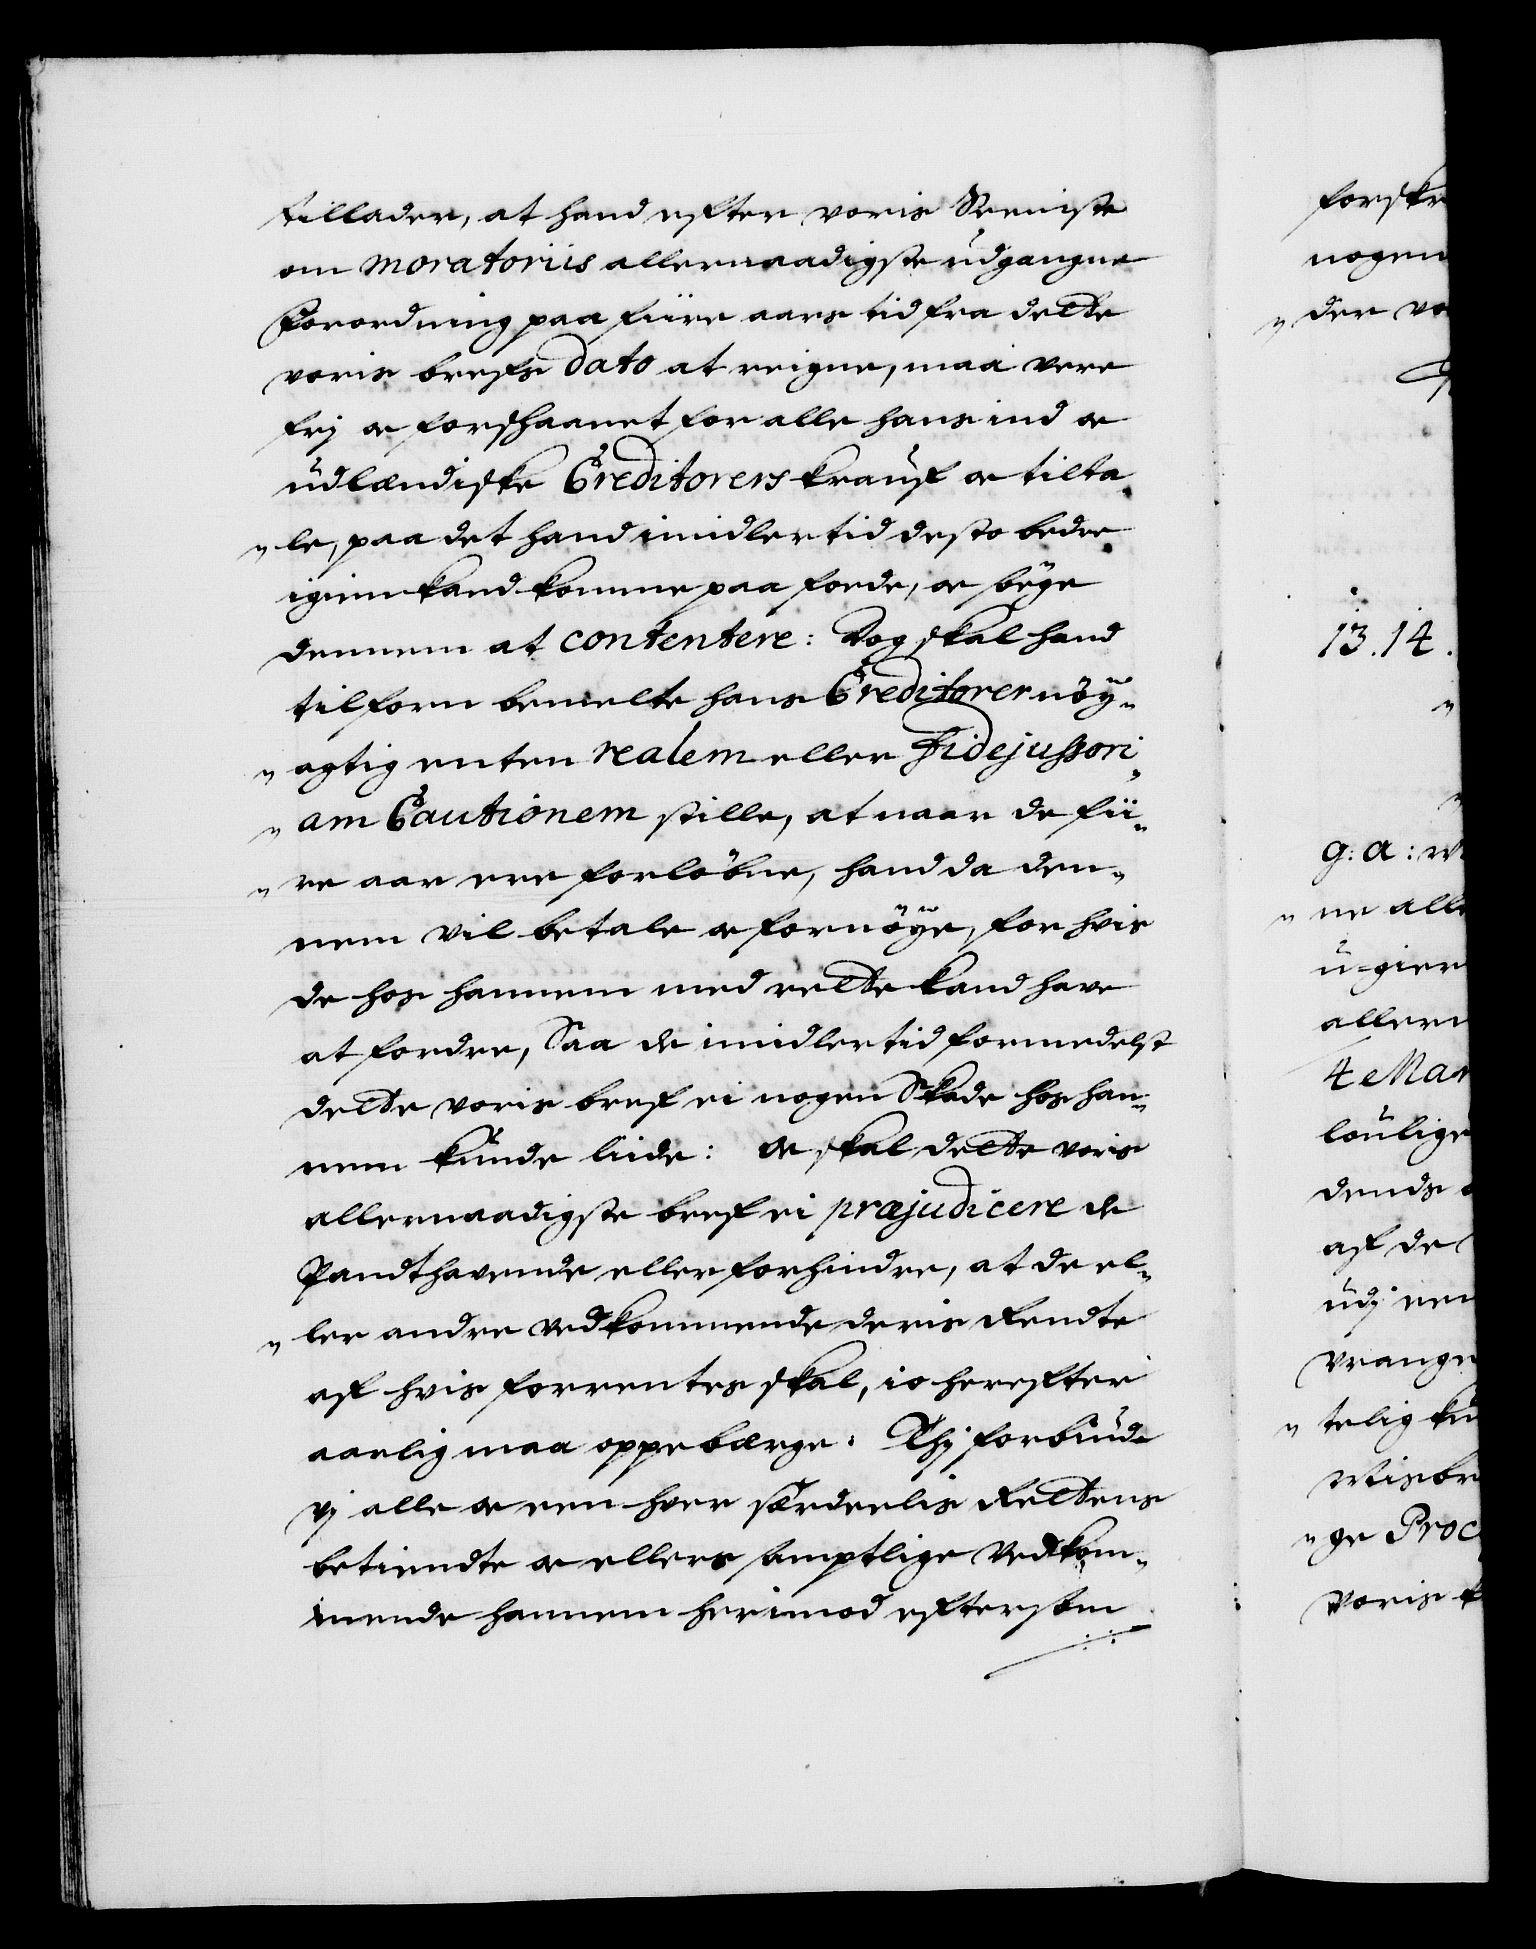 tillader, at hand efter voris Seeniste
om moratoriis allernaadigste udgangne
Forordning paa fiire aars tid fra dette
voris brefs Dato at reigne, maa vere
frj oc forschaanet for alle hans ind oc
udlændiske Creditorers krauf oc tilta¬
"le, paa det hand imidlertid desto bedre
igien kand komme paa fode, oc söge
dennem at contentere: Dog skal hand
tilforn bemelte hans Creditorer nöy¬
"agtig enten realem eller Fidejussori
"am Cautionem stille, at naar de fii¬
"re aar ere forløbne, hand da den¬
nem vil betale oc fornöye, for hvis
de hos hannem med rette kand have
at fordre, Saa de imidlertid formedelst
dette voris bref ei nogen Skade hos han¬
nem kunde liide: Oc skal dette voris
allernaadigste bref ei præjudicere de
Pandthavende eller forhindre, at de el¬
"ler andre vedkommende deris Rendte
af hvis forrentes skal, io herefter
aarlig maa oppebærge. Thj forbiude
Vj alle oc een hver særdeelis Rettens
betiendte oc ellers samptlige Vedkom¬
mende hannem herimod eftersom
forskre
nogen
"der vo
13.14.
g: a: vi
"ne alle
u-gier
allern
4 Mar
loulige
dends
af de
udj een
vrange
"telig
Misbr
"ge Proc
Voris